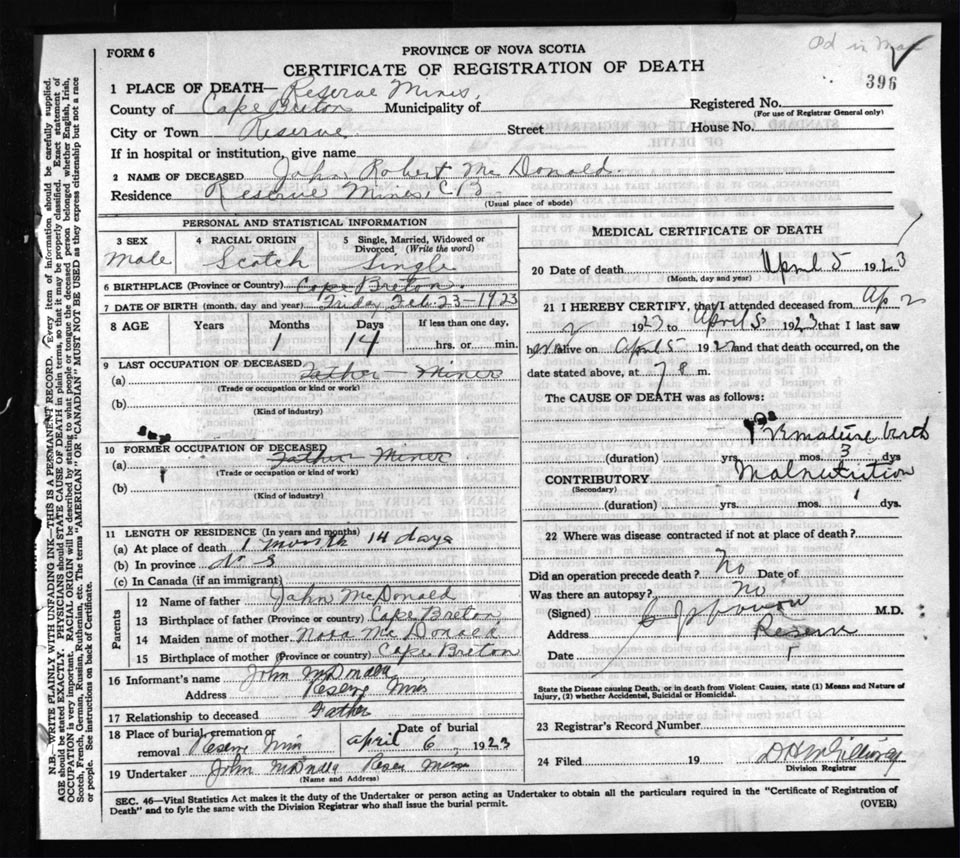 Pd in
FORM 6
PROVINCE OF NOVA SCOTIA
CERTIFICATE OF REGISTRATION OF DEATH
396
1 PLACE OF DEATH— Reserve Mines,
County of Cape Breton Municipality of
Registered No.
(For use of Registrar General only)
City or Town Reserve Street House No.
If in hospital or institution, give name
2 NAME OF DECEASED John Robert McDonald.
Residence Reserve Mines, C B
(Usual place of abode)
PERSONAL AND STATISTICAL INFORMATION
3 SEX
Male
4 RACIAL ORIGIN
Scotch
5 Single, Married, Widowed or Divorced (Write the word)
Single
6 BIRTHPLACE (Province or Country) Cape Breton.
7 DATE OF BIRTH (month, day and year) Friday Feb. 23-1923
8 AGE Years Months Days If less than one day,
1 14 hrs. or min.
9 LAST OCCUPATION OF DECEASED
(a) Father - Miner
(Trade or occupation or kind or work)
(b)
(Kind of industry)
10 FORMER OCCUPATION OF DECEASED
(a) Father Miner
(Trade or occupation or kind of work)
(b)
(Kind of industry)
11 LENGTH OF RESIDENCE (In years and months)
(a) At place of death 1 month 14 days
(b) In province N S
(c) In Canada (if an immigrant)
Parents
12 Name of father John McDonald
13 Birthplace of father (Province or country) Cape Breton
14 Maiden name of mother Nora McDonald
15 Birthplace of mother (Province or country) Cape Breton
16 Informant's name John McDonald
Address Reserve Mines
17 Relationship to deceased Father
18 Place of burial, cremation or removal Reserve Mines
Date of burial
April 6, 1923
19 Undertaker John McDonald Reserve Mines
(Name and Address)
MEDICAL CERTIFICATE OF DEATH
20 Date of death April 5 1923
(Month, day and year)
21 I HEREBY CERTIFY, that I attended deceased from Ap 2
1923 to April 5 1923 that I last saw
h alive on April 5 192 and that death occurred, on the
date stated above, at 7 m.
The CAUSE OF DEATH was as follows:
Premature birth
(duration) yrs. mos. 3 dys
CONTRIBUTORY Malnutrition
(Secondary)
(duration) yrs. mos. 1 dys.
22 Where was disease contracted if not at place of death?
Did an operation precede death? No Date of
Was there an autopsy? No
(Signed) M.D.
Address Reserve
Date
State the Disease causing Death, or in death from Violent Causes, state (1) Means and Nature of
Injury, (2) whether Accidental, Suicidal or Homicidal.
23 Registrar's Record Number
24 Filed 19
Division Registrar
SEC. 46—Vital Statistics Act makes it the duty of the Undertaker or person acting as Undertaker to obtain all the particulars required in the "Certificate of Registration of
Death" and to fyle the same with the Division Registrar who shall issue the burial permit.
(OVER)
N.B.—WRITE PLAINLY WITH UNFADING INK—THIS IS A PERMANENT RECORD. Every item of information should be carefully supplied.
AGE should be stated EXACTLY. PHYSICIANS should STATE CAUSE OF DEATH in plain terms, so that it may be properly classified. Exact statement of
OCCUPATION is very important. RACIAL ORIGIN will be described by stating to what people or tongue the deceased person belonged whether English, Irish,
Scotch, French, German, Russian, Ruthenian, etc. The terms "AMERICAN" OR "CANADIAN" MUST NOT BE USED as they express citizenship but not a race
or people. See instructions on back of Certificate.